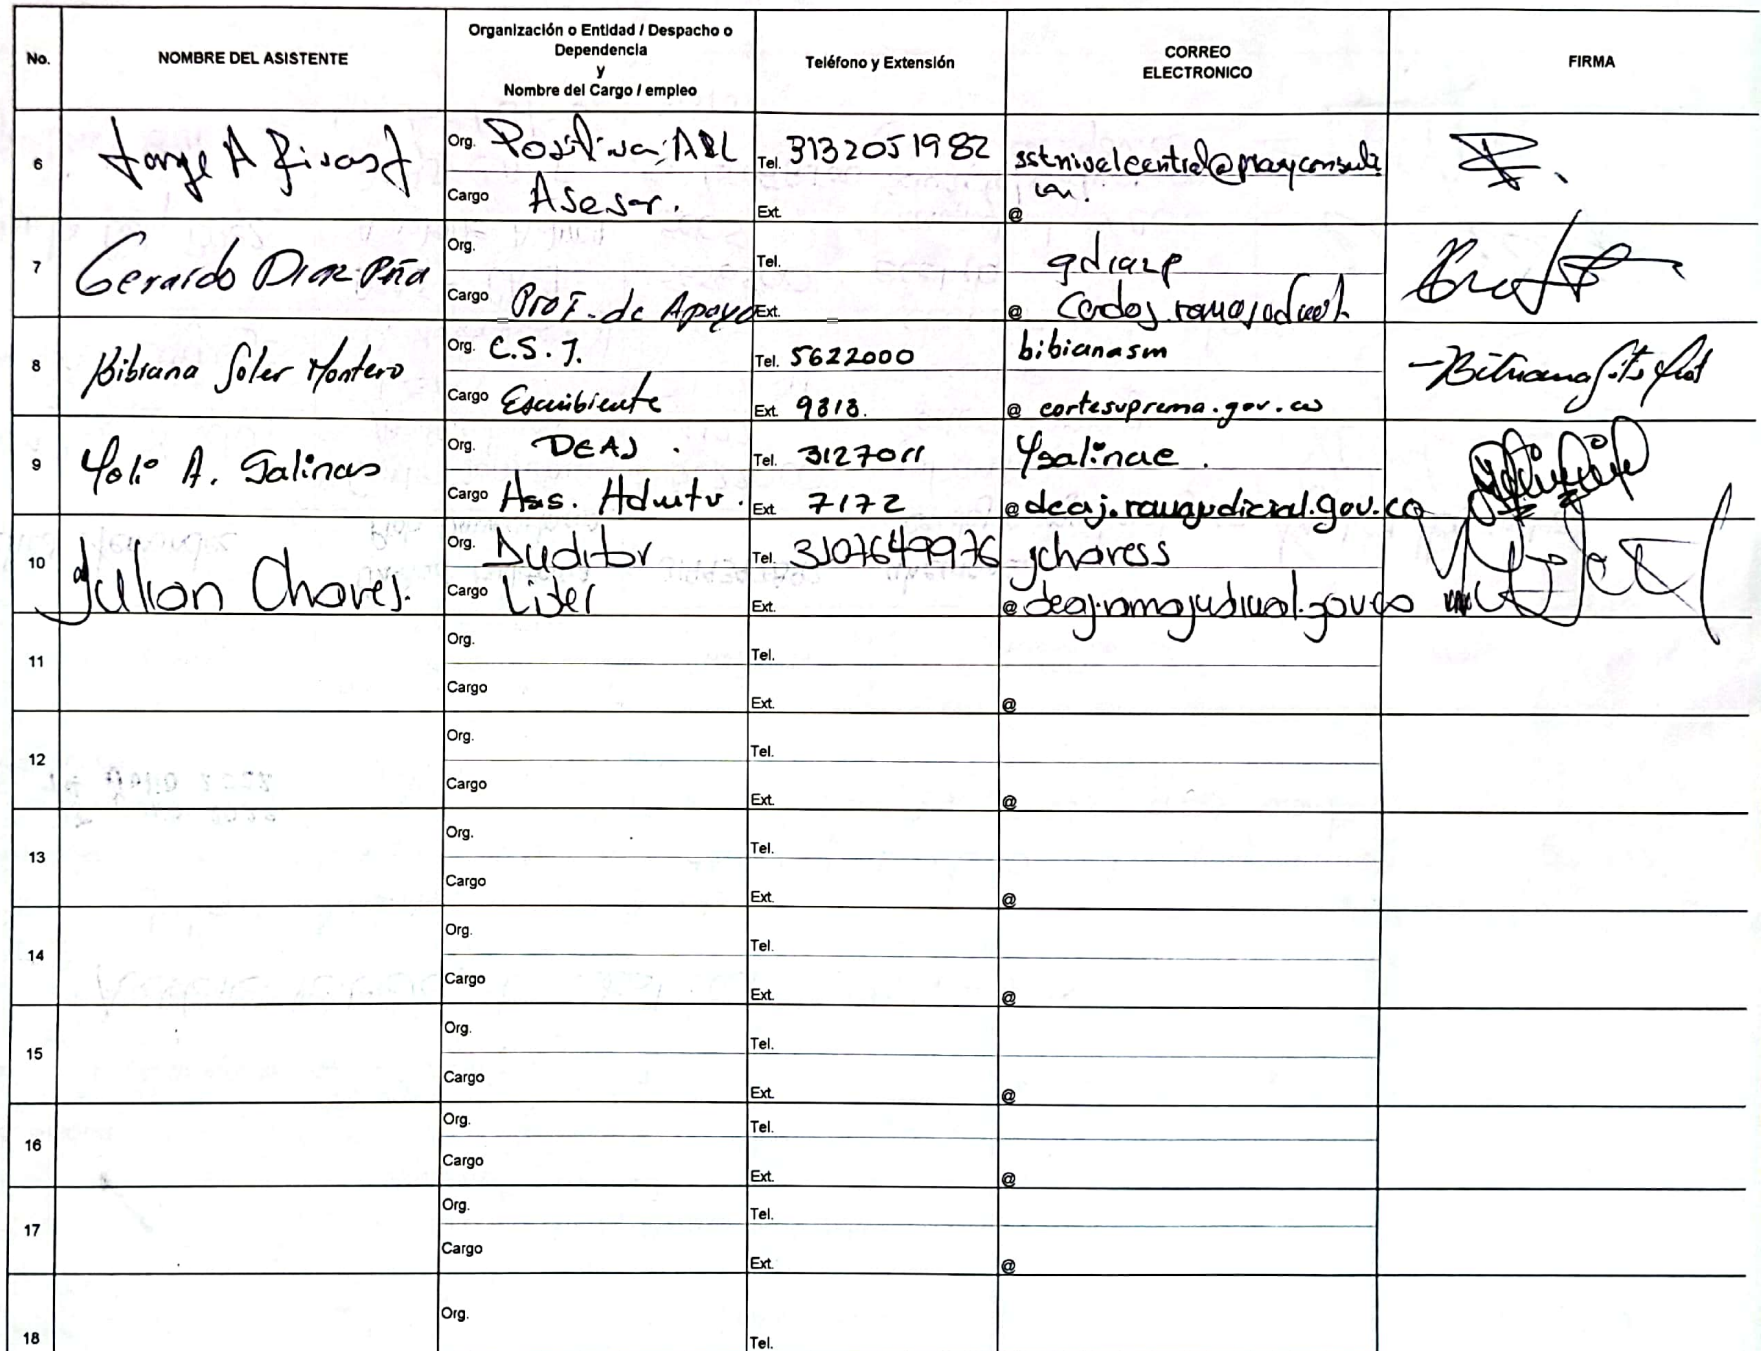 No.
NOMBRE DEL ASISTENTE
Organización o Entidad / Despacho o
Dependencia
y
Nombre del Cargo / empleo
Teléfono y Extensión
CORREO
ELECTRONICO
FIRMA
6
Jorge A Rivas
Org. Positiva ARL
Cargo Asesor.
Tel. 3132051982
Ext.
@
7
Gerardo Diaz Peña
Org.
Cargo Prof. de Apoyo
Tel.
Ext.
gdiazp
@
8
Bibiana Soler Montero
Org. C.S.J.
Cargo Escribiente
Tel. 5622000
Ext. 9818.
bibianasm
@ cortesuprema.gov.co
9
Yoli A. Salinas
Org. DEAJ.
Cargo Ass. Admtv.
Tel. 3127011
Ext. 7172
Ysalinae.
@deaj.ramajudicial.gov.co
10
Julian Chaves.
Org. Auditor
Cargo Lider
Tel. 3107649976
Ext.
jchavess
@deaj.ramajudicial.gov.co
11
Org.
Cargo
Tel.
Ext.
@
12
Org.
Cargo
Tel.
Ext.
@
13
Org.
Cargo
Tel.
Ext.
@
14
Org.
Cargo
Tel.
Ext.
@
15
Org.
Cargo
Tel.
Ext.
@
16
Org.
Cargo
Tel.
Ext.
@
17
Org.
Cargo
Tel.
Ext.
@
18
Org.
Tel.